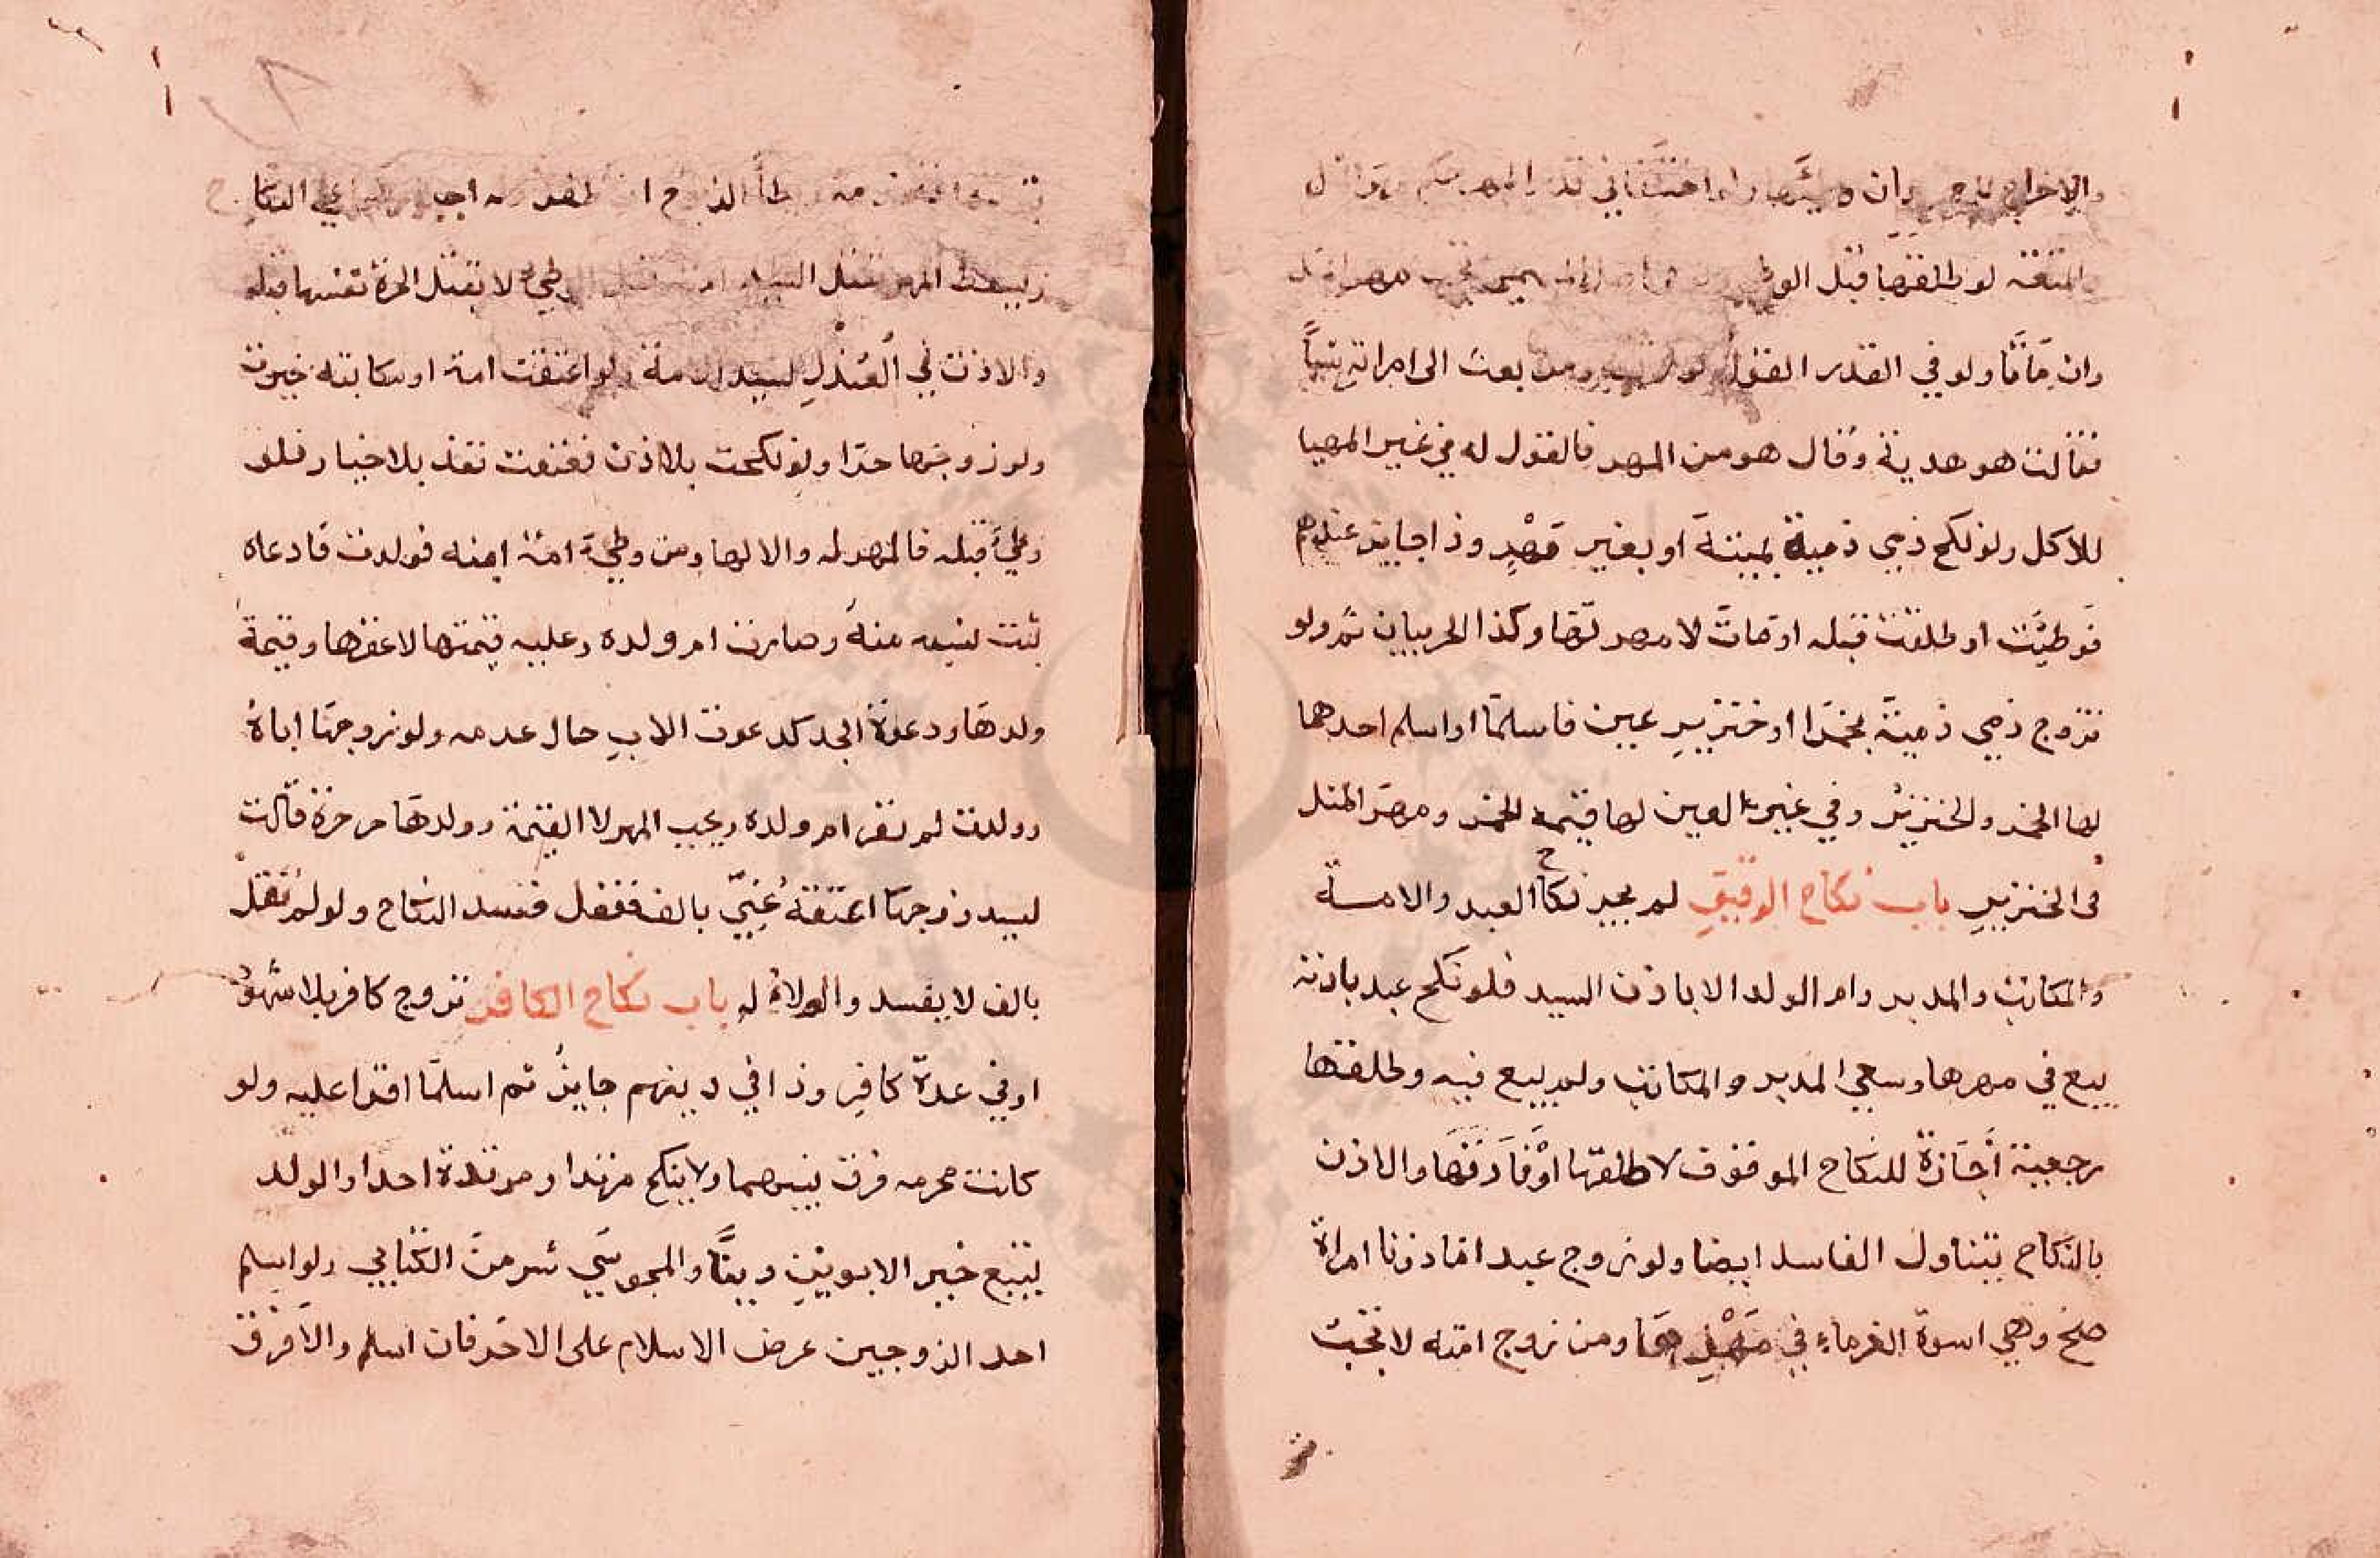 والاخراج للمهر وان وطئها ولو اختلفا في قدر المهر حكم مهر المثل
والمتعة لو طلقها قبل الوطئ
وان ماتا ولو في القدر القول لورثته ومن بعث الى امراته شيأ
فقالت هو هدية وقال هو من المهر فالقول له في غير المهيا
للاكل ولو نكح ذمي ذمية بميتة او بغير مهر وذا جايز عندهم
فوطئت او طلقت قبله او مات لا مهر لها وكذا الحربيان ثم ولو
تزوج ذمي ذمية بخمر او خنزير عين فاسلما او اسلم احدهما
لها الخمر والخنزير وفي غير العين لها قيمة الخمر ومهر المثل
في الخنزير باب نكاح الرقيق لم يجز نكاح العبد والامة
والمكاتب والمدبر وام الولد الا باذن السيد فلو نكح عبد باذنه
بيع في مهرها وسعي المدبر والمكاتب ولم يبع فيه وطلقها
رجعية اجازة للنكاح الموقوف لا طلقها او فارقها والاذن
بالنكاح يتناول الفاسد ايضا ولو زوج عبدا ماذونا امراة
صح وهي اسوة الغرماء في مهرها ومن زوج امته لا تجب
اجبارهما على النكاح
ويسقط المهر بقتل السيد امته قبل الوطئ لا بقتل الحرة نفسها قبله
والاذن في العزل لسيد الامة ولو اعتقت امة او مكاتبة خيرت
ولو زوجها حرا ولو نكحت بلا اذن فعتقت نفذ بلا خيار فلو
وطئ قبله فالمهر له والا لها ومن وطئ امة ابنه فولدت فادعاه
ثبت نسبه منه وصارت ام ولده وعليه قيمتها لا عقرها وقيمة
ولدها ودعوة الجد كدعوت الاب حال عدمه ولو زوجها اباه
وولدت لم تصر ام ولده ويجب المهر لا القيمة وولدها حر حرة قالت
لسيد زوجها اعتقه عني بالف ففعل فسد النكاح ولو لم تقل
بالف لا يفسد والولاء له باب نكاح الكافر تزوج كافر بلا شهود
او في عدة كافر وذا في دينهم جايز ثم اسلما اقرا عليه ولو
كانت محرمه فرق بينهما ولا ينكح مرتد او مرتدة احدا والولد
يتبع خير الابوين دينا والمجوسي شر من الكتابي ولو اسلم
احد الزوجين عرض الاسلام على الاخر فان اسلم والا فرق